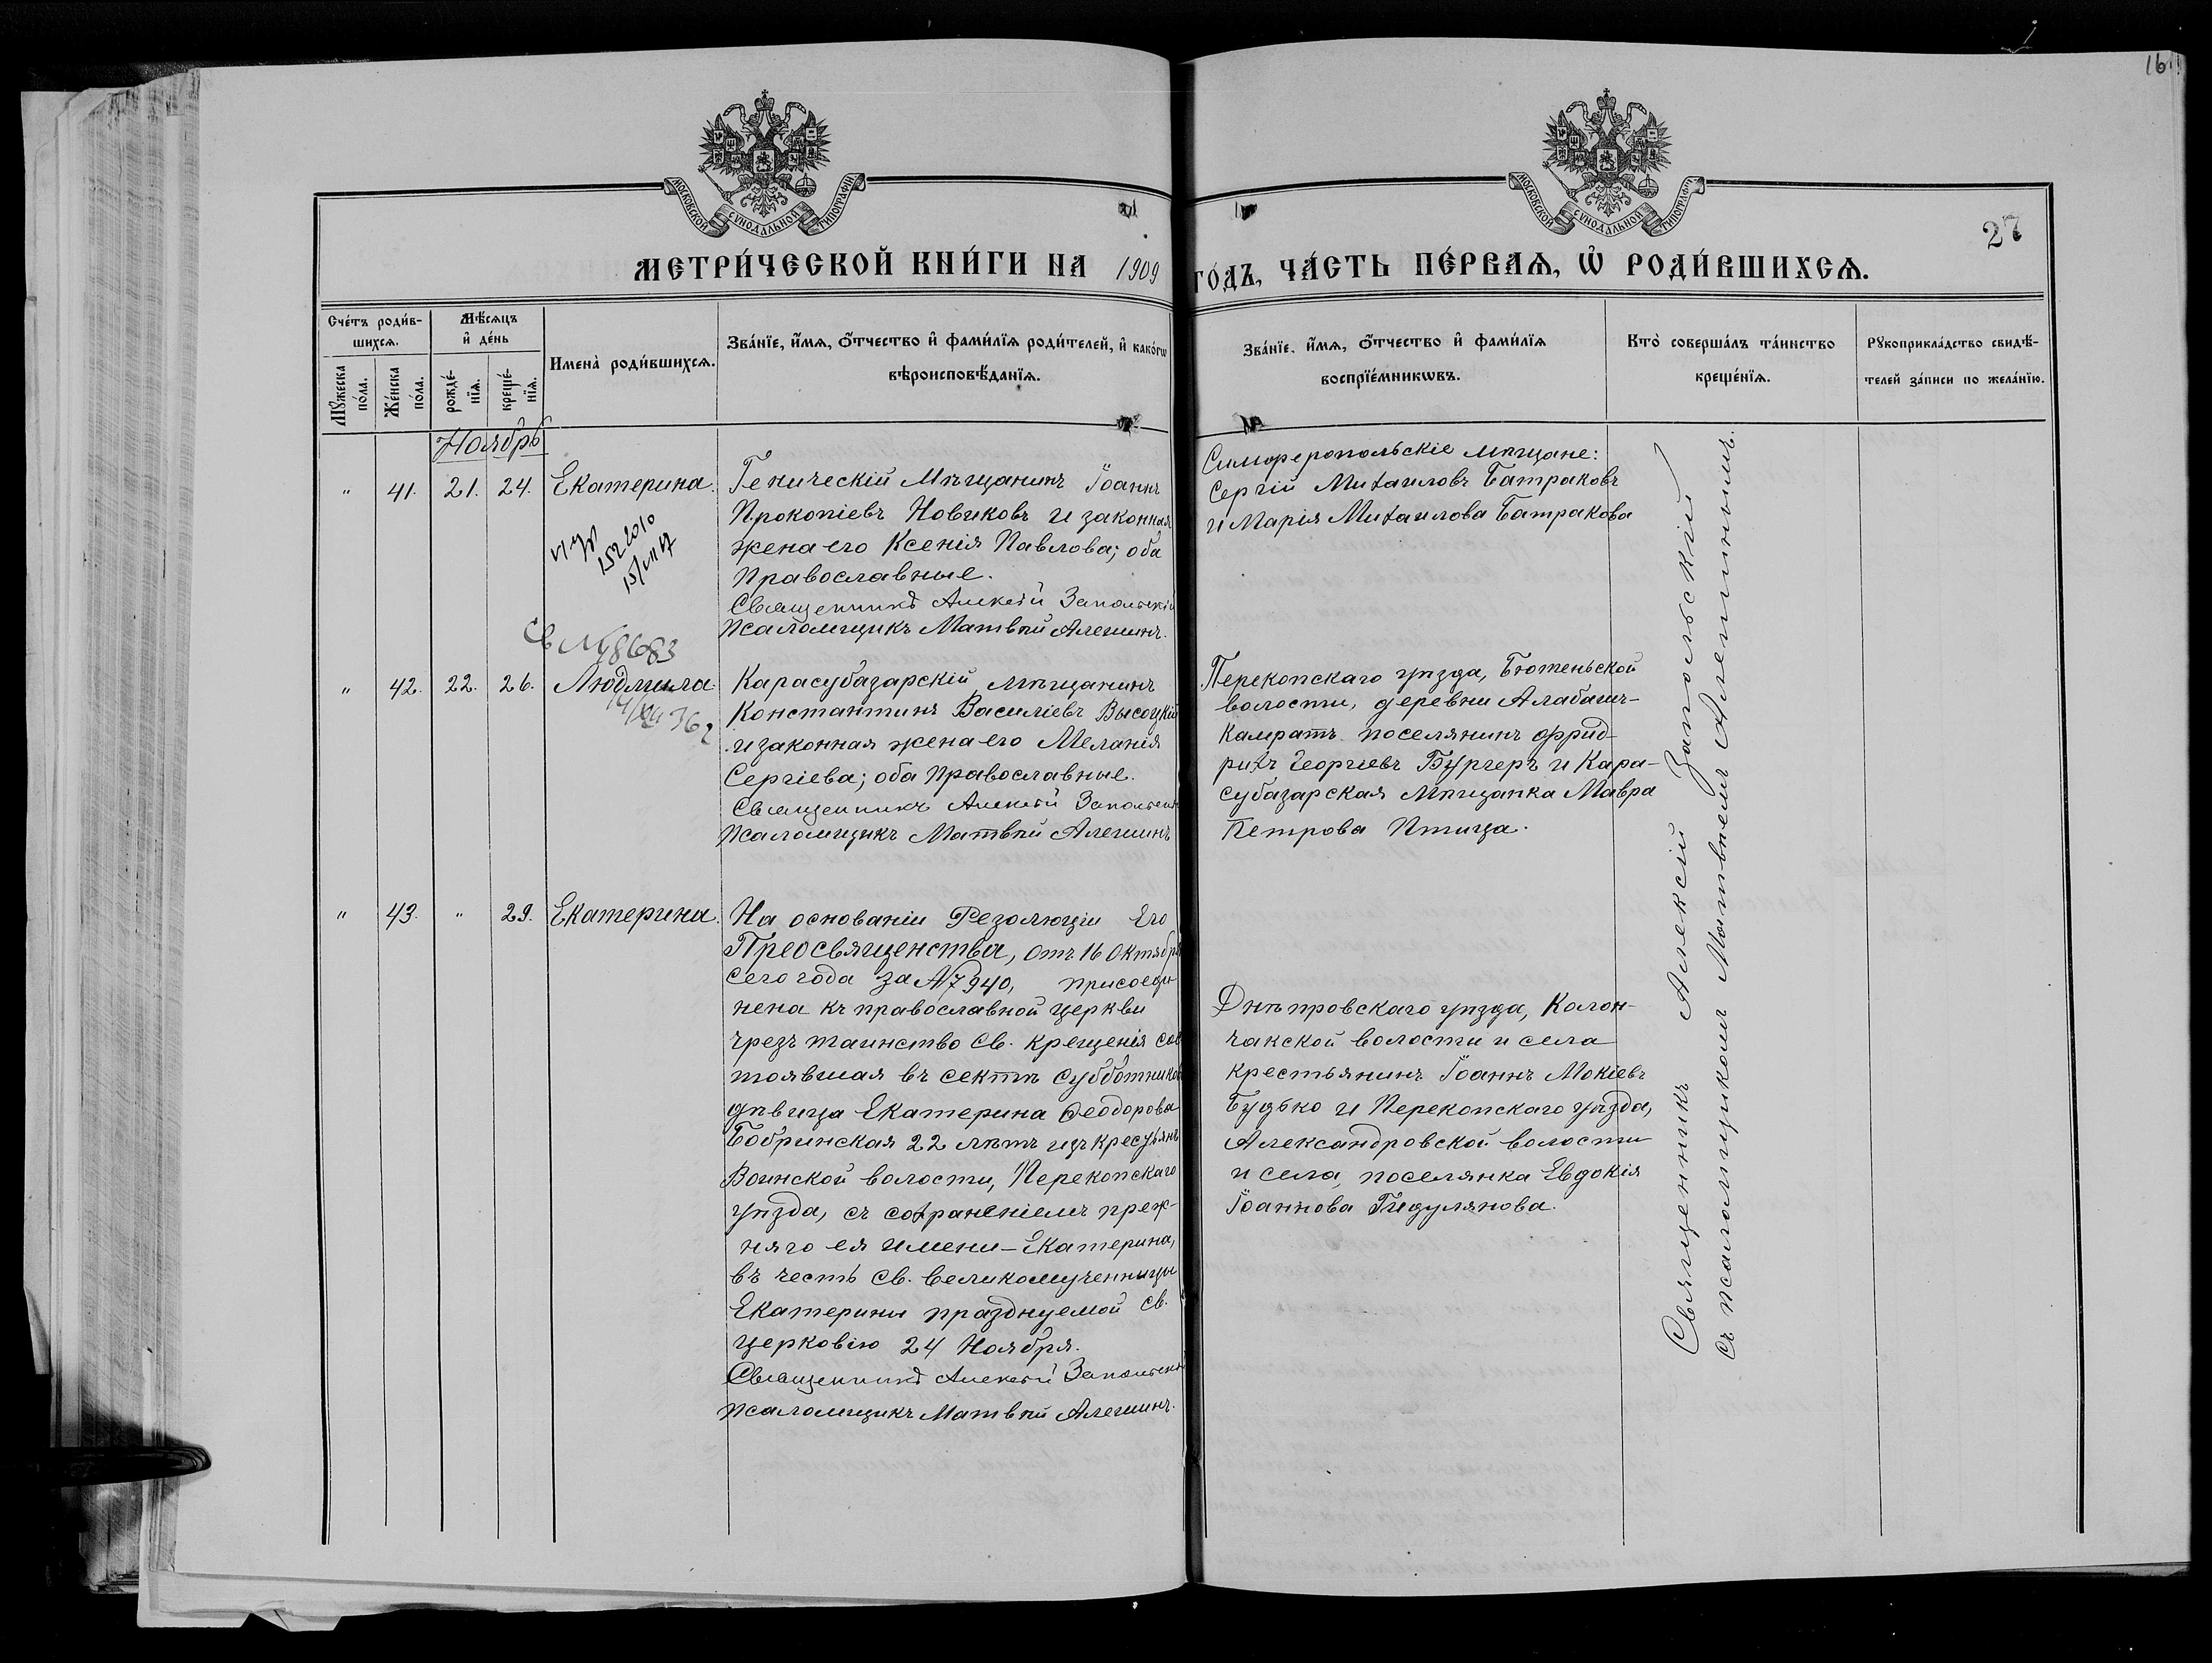 16
27
МОСКОВСКОЙ СУНОДАЛЬНОЙ ТИПОГРАФІИ
МОСКОВСКОЙ СУНОДАЛЬНОЙ ТИПОГРАФІИ
МЕТРИ́ЧЕСКОЙ КНИ́ГИ НА 1909 ГО́ДЪ, ЧА́СТЬ ПЕ́РВАѦ, Ѡ РОДИ́ВШИХСѦ.
Сче́тъ роди́в-
шихсѧ.
Мꙋ́жеска по́ла.
Же́нска по́ла.
Мѣ́сѧцъ и҆ де́нь
рожде́-
нїѧ.
креще́-
нїѧ.
Имена̀ роди́вшихсѧ.
Зва́нїе, и҆́мѧ, ѻ҆́тчество и҆ фами́лїѧ роди́телей, и҆ како́гѡ
вѣроисповѣ́данїѧ.
Зва́нїе, и҆́мѧ, ѻ҆́тчество и҆ фами́лїѧ
воспрїе́мникѡвъ.
Кто̀ соверша́лъ та́инство
креще́нїѧ.
Рꙋкоприкла́дство свидѣ́-
телей за́писи по жела́нїю.
Ноябрь
" 41. 21. 24. Екатерина.
Геническій Мѣщанинъ Іоаннъ
Прокопіевъ Новиковъ и законная
жена его Ксенія Павлова; оба
Православные.
Священникъ Алексій Запольскій
Псаломщикъ Матвѣй Алешинъ.
Симферопольскіе мѣщане:
Сергій Михаиловъ Батраковъ
и Марія Михаилова Батракова
152010
15/VII 17
Св № 8683
" 42. 22. 26. Людмила
Карасубазарскій мѣщанинъ
Константинъ Василіевъ Высоцкій
и законная жена его Меланія
Сергіева; оба Православные.
Священникъ Алексій Запольскій
Псаломщикъ Матвѣй Алешинъ
Перекопскаго уѣзда, Бютеньской
волости, деревни Алабаш-
Камратъ поселянинъ Фрид-
рихъ Георгіевъ Бургеръ и Кара-
субазарская Мѣщанка Мавра
Петрова Птица.
" 43. " 29. Екатерина.
На основаніи Резолюціи Его
Преосвященства, отъ 16 Октября
сего года за № 7940, присоеди
нена къ православной церкви
чрезъ таинство Св. крещенія сос
тоявшая въ сектѣ субботниковъ
дѣвица Екатерина Ѳеодорова
Бобринская 22 лѣтъ изъ крестьянъ
Воинской волости, Перекопскаго
уѣзда, съ сохраненіемъ преж-
няго ея имени – Екатерина,
въ честь Св. великомученницы
Екатерины празднуемой Св.
Церковію 24 Ноября.
Священникъ Алексій Запольскій
Псаломщикъ Матвѣй Алешинъ.
Днѣпровскаго уѣзда, Колон-
чакской волости и села
крестьянинъ Іоаннъ Мокіевъ
Будько и Перекопскаго уѣзда,
Александровской волости
и села, поселянка Евдокія
Іоаннова Гидулянова.
Священникъ Алексій Запольскій
съ псаломщикомъ Матвѣемъ Алешинымъ.